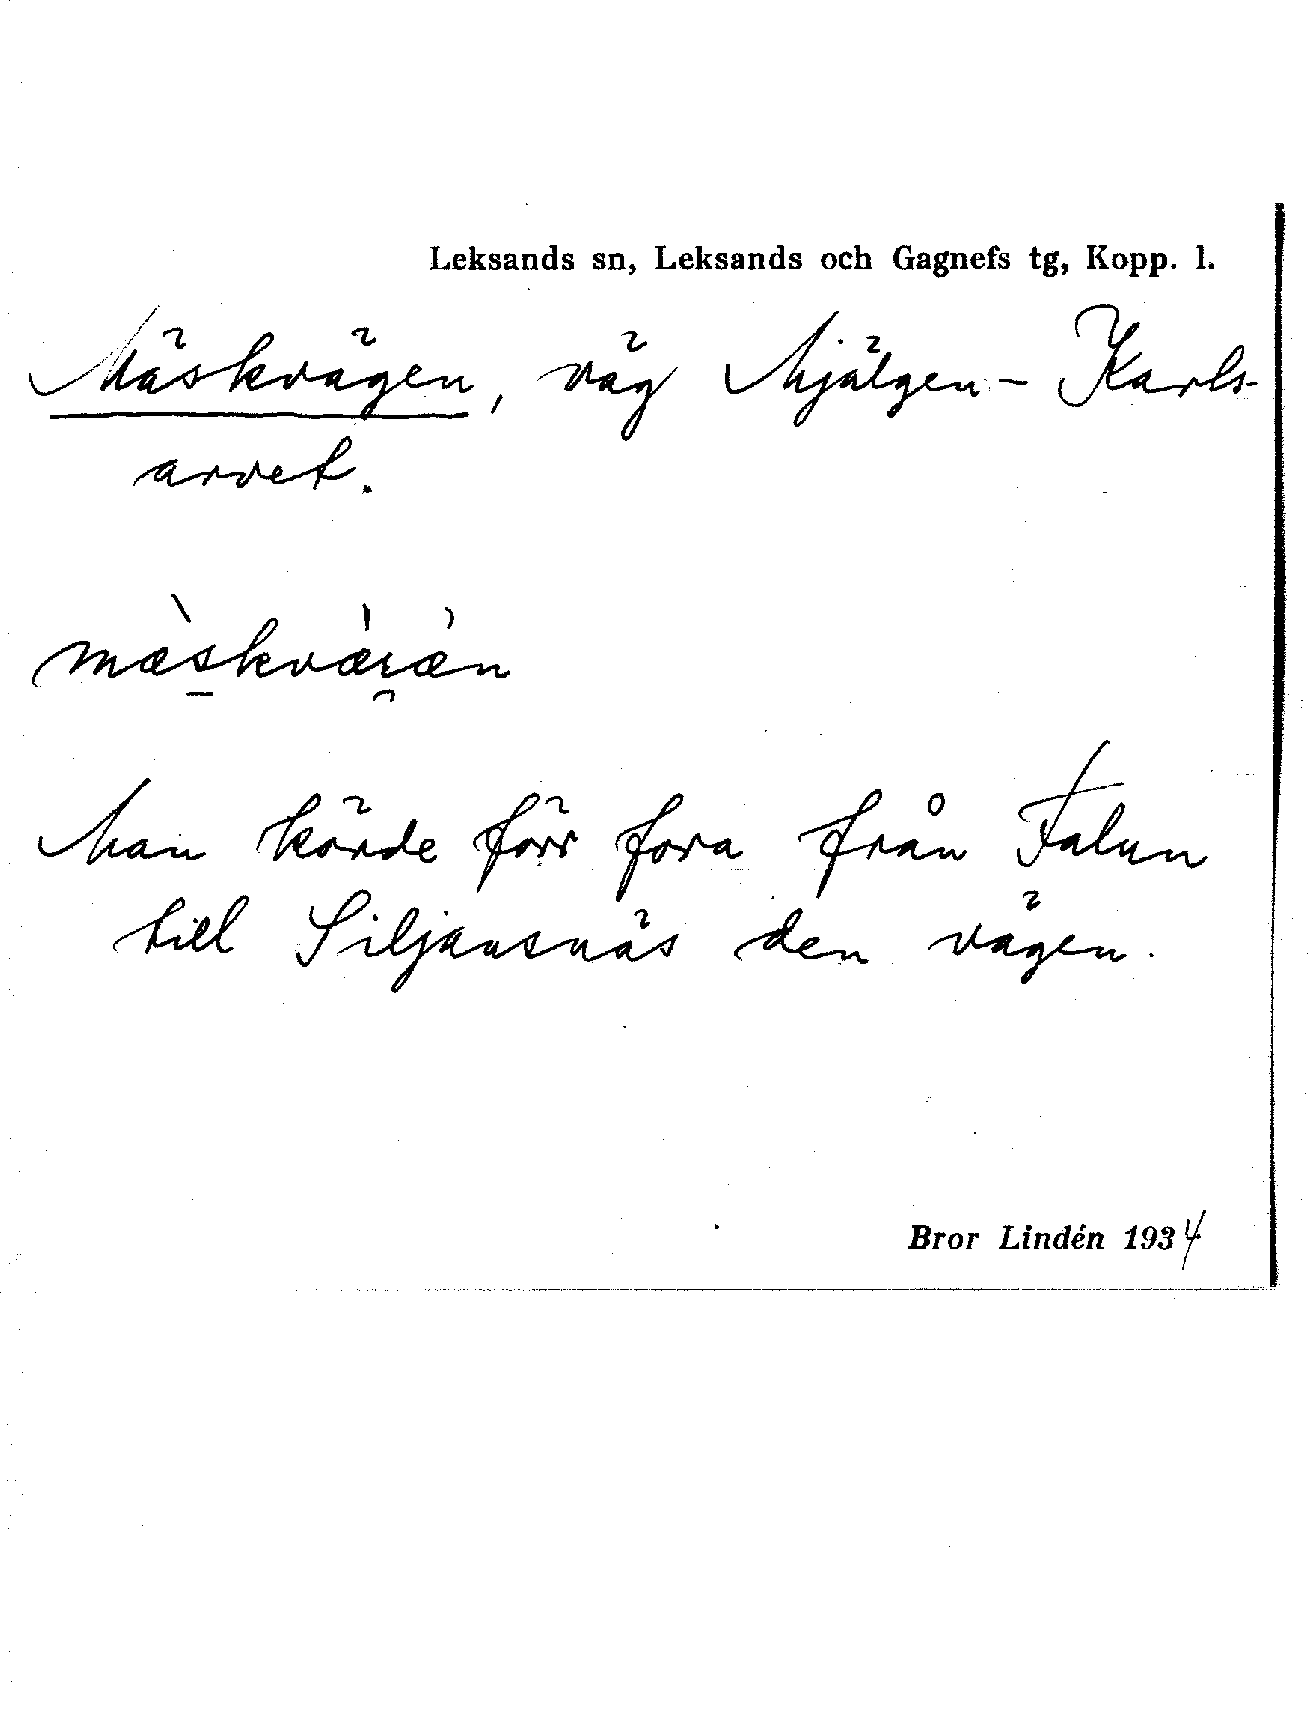 Leksands sn, Leksands och Gagnefs tg, Kopp. l.
Mäskvägen, väg Mjälgen - Karls-
arvet.
mæskvæ̀ıæ̀n
Man körde förr fora från Falun
till Siljansnäs den vägen.
Bror Lindén 1934